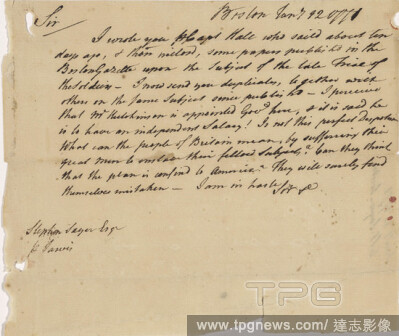 Boston Jany 12 1771
Sir
I wrote you p Capt Hall who saild about ten
days ago, & then inclosd, some papers publishd in the
Boston Gazette upon the Subject of the late Trials of
the Soldiers - I now send you duplicates, together with
others on the same Subject since publishd - I perceive
that Mr Hutchinson is appointed Govr here, & it is said he
is to have an independent Salary! Is not this perfect Despotism
What can the people of Britain mean, by suffering their
great men to enslave their fellow Subjects? Can they think
that the plan is confind to America? They will surely find
themselves mistaken - I am in haste
Stephen Sayer Esqr
TPG
www.tpgnews.com/ 達志影像